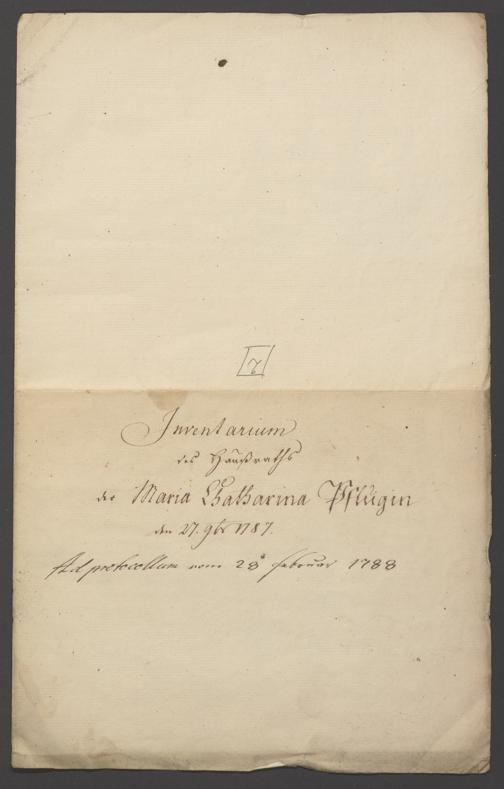 7
Inventarium
des Haußraths
der Maria Catharina Pflügin
den 27. 9br 1787.
Ad protocollum vom 28 Februar 1788